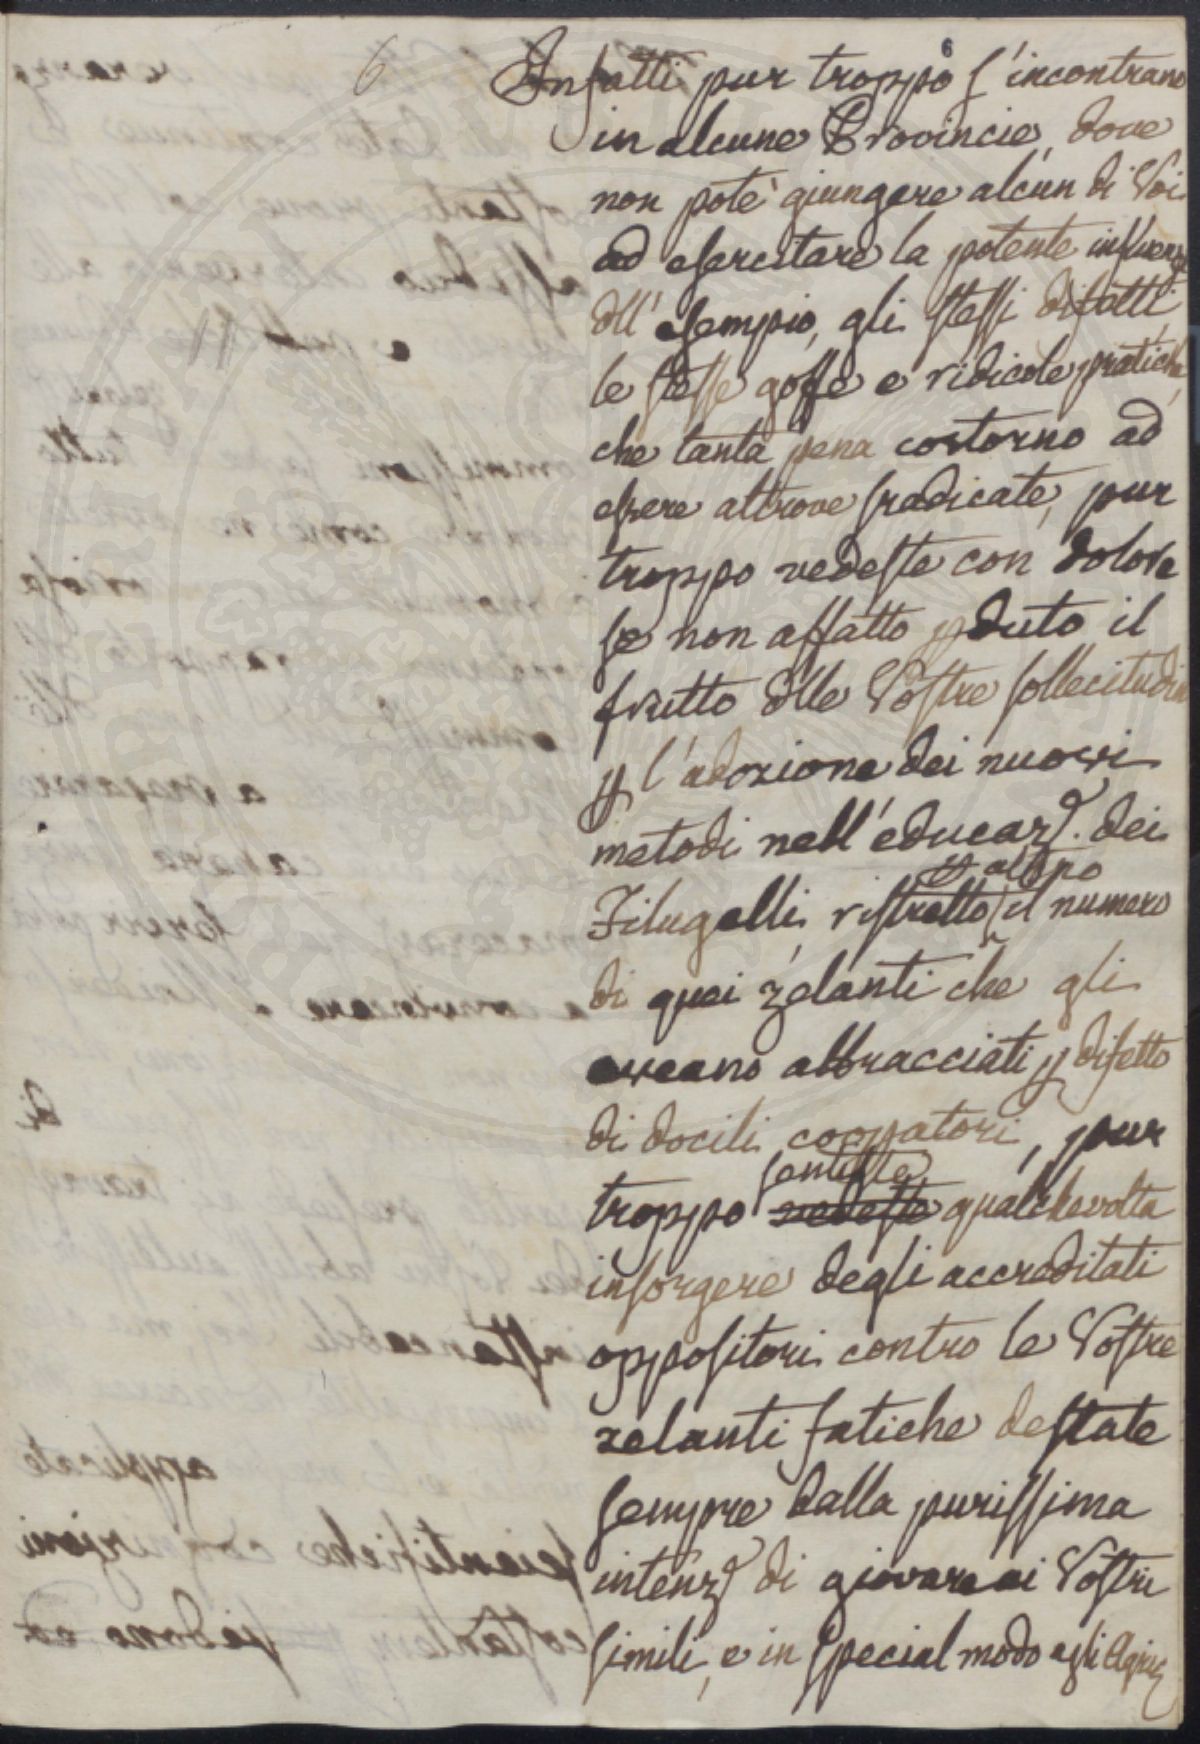 6
6
Infatti pur troppo s'incontrano
in alcune Provincie, dove
non potè giungere alcun di Voi
ad esercitare la potente influenza
dll'esempio, gli stessi difetti
le stesse goffe e ridicole pratiche,
che tanta pena costorno ad
essere altrove sradicate, pur
troppo vedeste con dolore
se non affatto pduto il
frutto dlle Vostre sollecitudini
p l'adozione dei nuovi
metodi nell'educaz.e dei
p altro
Filugelli, ristretto il numero
di quei zelanti che gli
aveano abbracciati p difetto
di docili coopatori, pur
sentiste
troppo vedeste qualchevolta
insorgere degli accreditati
oppositori contro le Vostre
zelanti fatiche destate
sempre dalla purissima
intenz.e di giovare ai Vostri
simili, e in special modo agli